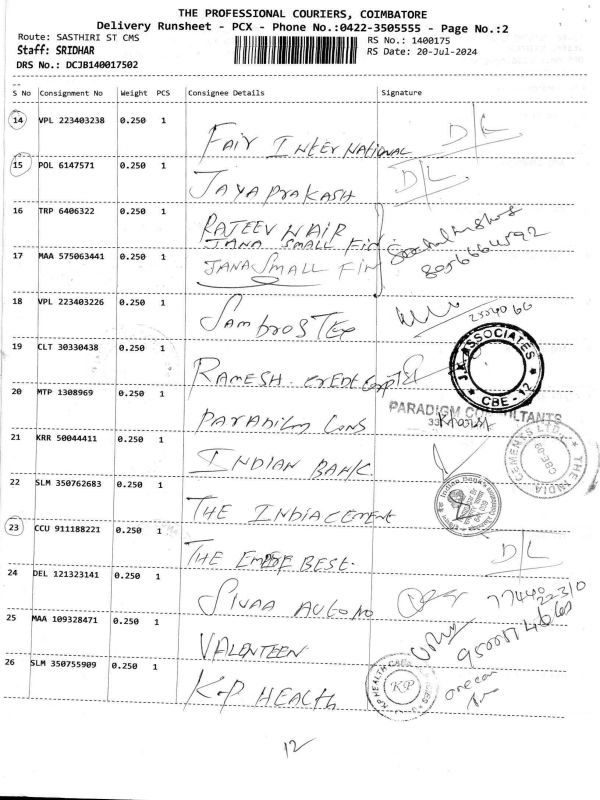 THE PROFESSIONAL COURIERS, COIMBATORE
Delivery Runsheet - PCX - Phone No.:0422-3505555 - Page No.:2
Route: SASTHIRI ST CMS
RS No.: 1400175
Staff: SRIDHAR
RS Date: 20-Jul-2024
DRS No.: DCJB140017502
S No Consignment No Weight PCS Consignee Details Signature
14 VPL 223403238 0.250 1 FAIR INTERNATIONAL D/L
15 POL 6147571 0.250 1 JAYAPRAKASH D/L
16 TRP 6406322 0.250 1 RAJEEV NAIR
JANA SMALL FIN
17 MAA 575063441 0.250 1 JANA SMALL FIN 8056664592
18 VPL 223403226 0.250 1 SAMBROS TEX
19 CLT 30330438 0.250 1 RAMESH
J.K ASSOCIATES * CBE - 12 *
20 MTP 1308969 0.250 1 PARADIGM CONS
PARADIGM CONSULTANTS
21 KRR 50044411 0.250 1 INDIAN BANK
THE INDIA CEMENTS LTD. CBE-09
22 SLM 350762683 0.250 1 THE INDIACEMENT
23 CCU 911188221 0.250 1 THE BEST. D/L
24 DEL 121323141 0.250 1 SIVAA AUTOMO
25 MAA 109328471 0.250 1 VALENTEEN
26 SLM 350755909 0.250 1 K.P HEALTH
KP HEALTH KP
12